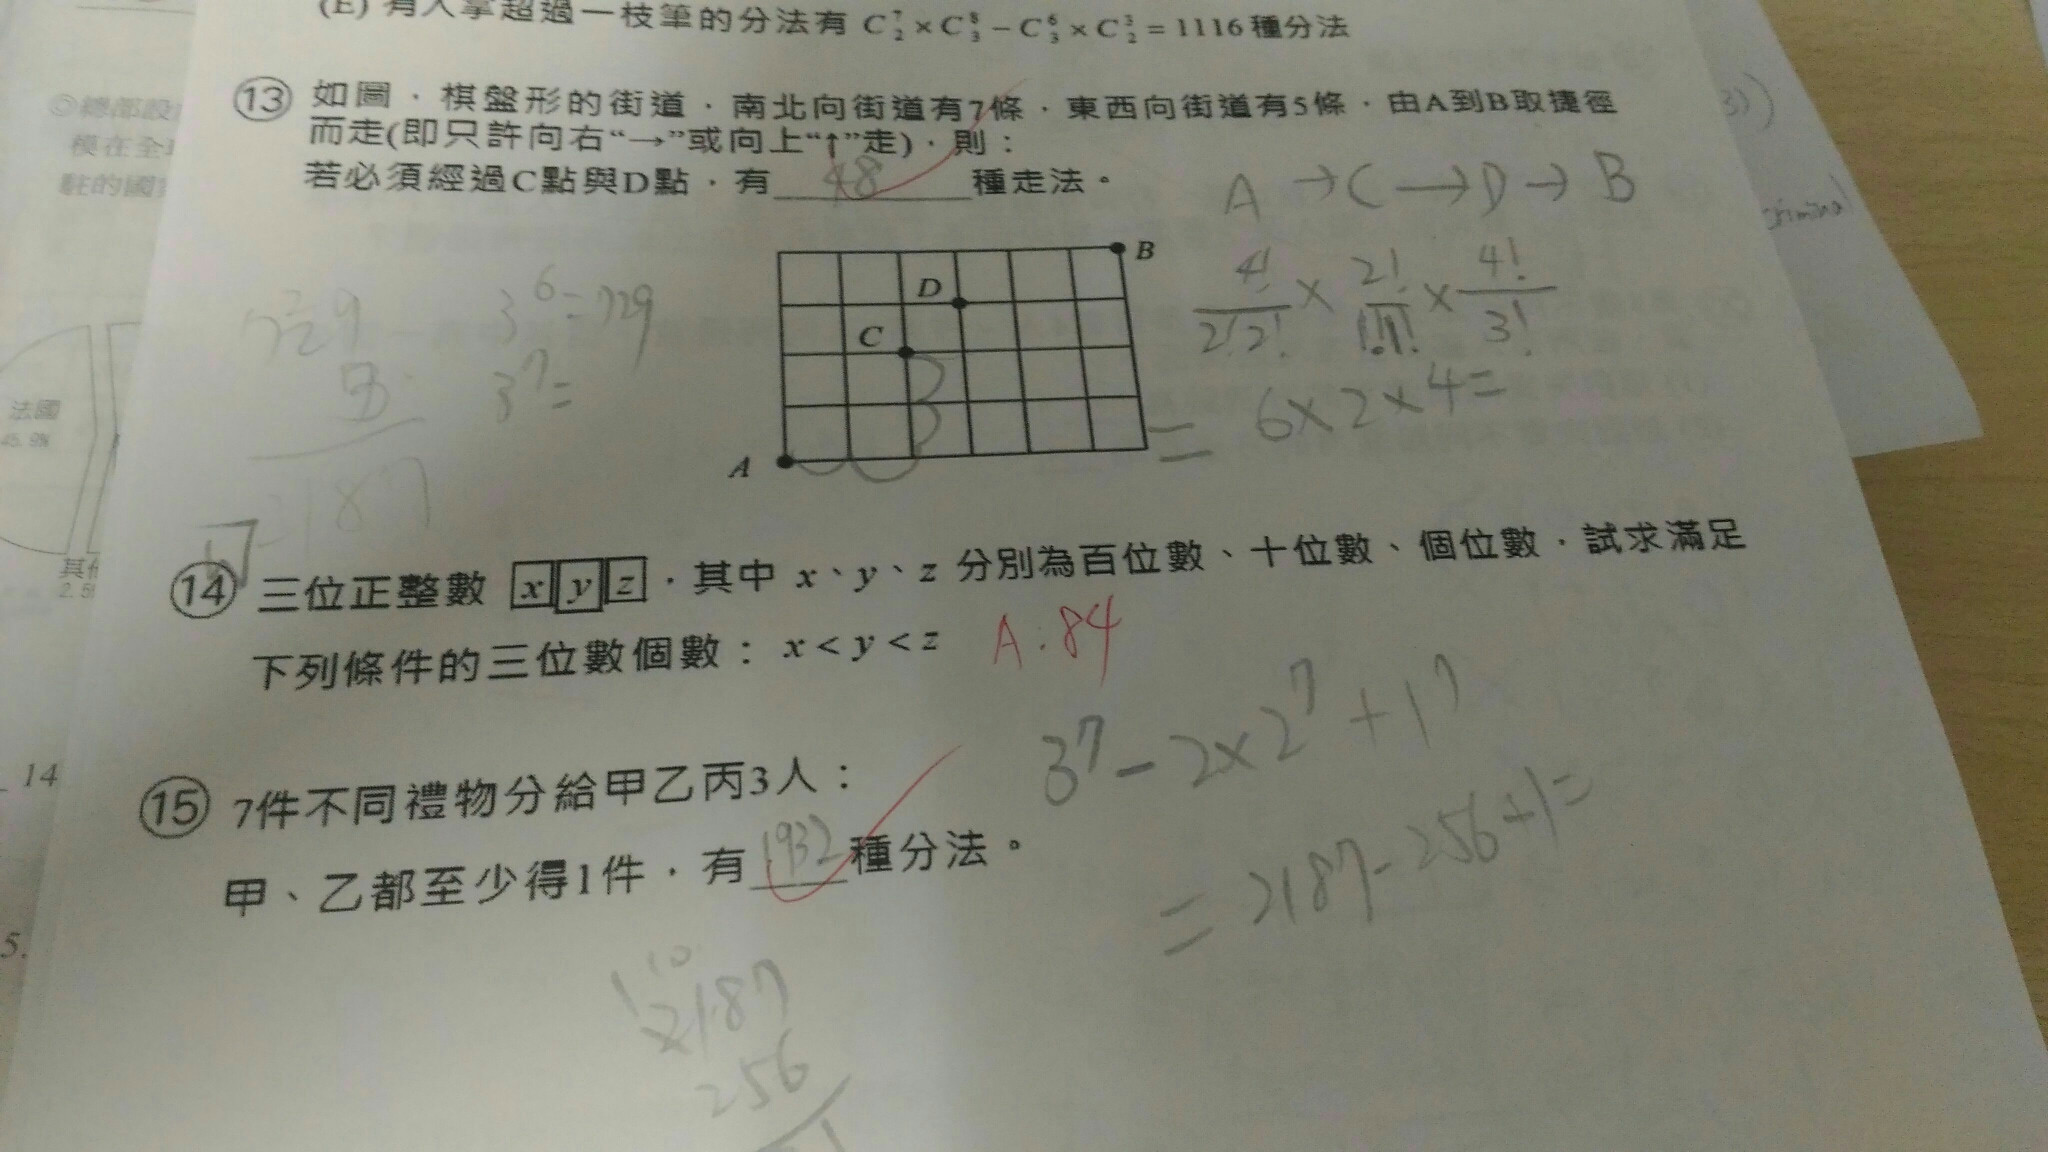 (E) 有人拿超過一枝筆的分法有 C⁷₂×C⁸₃−C⁶₃×C³₂=1116 種分法
⑬ 如圖，棋盤形的街道，南北向街道有7條，東西向街道有5條，由A到B取捷徑
而走(即只許向右“→”或向上“↑”走)，則：
若必須經過C點與D點，有 48 種走法。
A → C → D → B
4!/2!2! × 2!/1!1! × 4!/3!
= 6×2×4=
B
D
C
A
729
3⁶=729
3⁷=
2187
⑭ 三位正整數 x y z，其中 x、y、z 分別為百位數、十位數、個位數，試求滿足
下列條件的三位數個數： x < y < z
A:84
⑮ 7件不同禮物分給甲乙丙3人：
甲、乙都至少得1件，有 1932 種分法。
3⁷−2×2⁷+1⁷
= 2187−256+1=
1 10
2187
256
◎總部設
模在全
駐的國
法國
45.9%
其他
14
5.